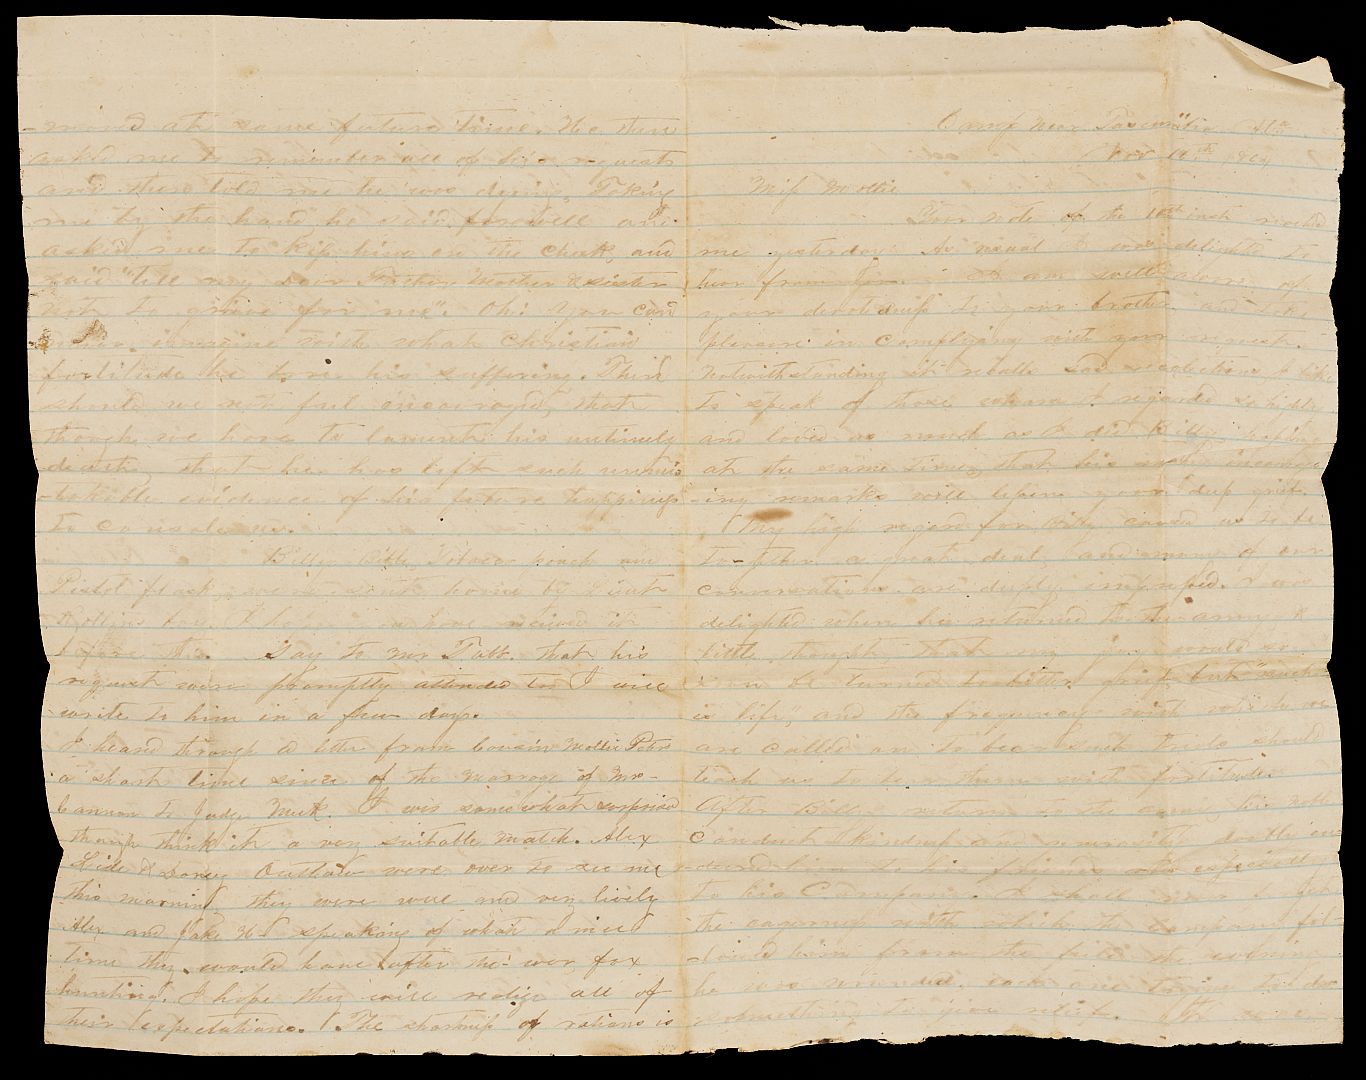 Camp Near Tuscumbia Ala
Nov 11th 1864
Miss Mollie
Your note of the 10th inst reached
me yesterday. As usual I was delighted to
hear from you. I am well aware of
your devotedness to your brother and take
pleasure in complying with your request.
Notwithstanding it recalls sad recollections, I like
to speak of those whom I regarded so highly
and loved as much as I did Billy, hoping
at the same time, that his most
-ing remarks will lessen your deep grief.
My high regard for Billy caused us to be
together a great deal, and many of our
conversations are deeply impressed. I was
delighted when he returned to the army &
little thought that my joy would so
soon be turned to bitter grief, but "such
is life, and the frequency with which we
are called on to bear such trials should
teach us to bear them with fortitude.
After Billy's return to the army, his noble
conduct kindness and generosity doubly en
-deared him to his friends and especially
to his Company. I shall never forget
the with which the company fol
-lowed him from the field the evening
he was wounded, each one trying to do
something to give relief. We were
-mond at some future time. He then
asked me to remember all of his requests
and then told me he was dying, Taking
me by the hand he said farewell and
asked me to kiss him on the cheek, and
said "tell my Dear Father, Mother & sister
not to grieve for me". Oh! You can
never imagine with what Christian
fortitude he bore his suffering. Then
should we not feel encouraged, that
though we have to lament his untimely
death, that he has left such unmis
-takable evidence of his future happiness
to console us.
Billy's Bible, Tobacco pouch and
Pistol flask, were sent home by Lieut
Rollins boy. I hope you have received it
before this. Say to Mr Tabb. that his
request were promptly attended to I will
write to him in a few days.
I heard through a letter from Cousin Mollie Peters
a short time since of the marrage of Mr
Cannon to Judge Meek. I was somewhat surprised
though think it a very suitable match. Alex
Lide & Dorsey Outlaw were over to see me
this morning they were well and very lively
Alex and Jake speaking of what a nice
time they would have after the war, fox
hunting. I hope they will realize all of
their expectations. The shortness of rations is